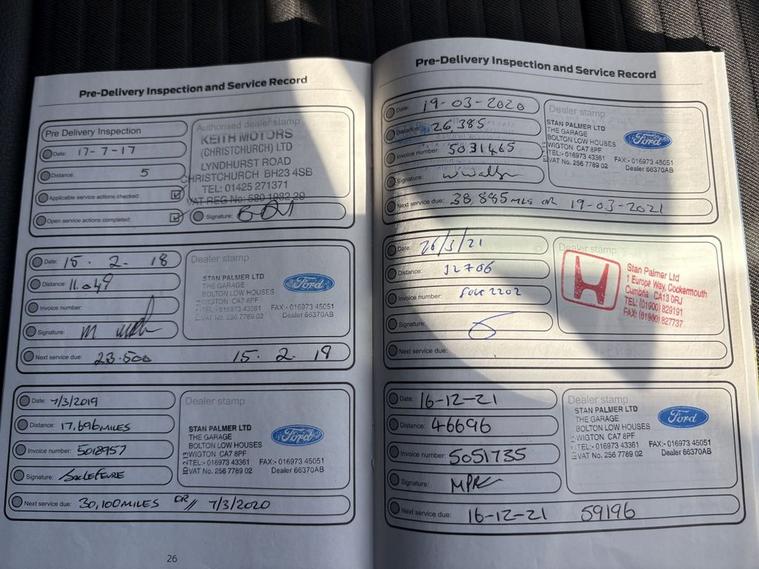 Pre-Delivery Inspection and Service Record
Pre Delivery Inspection
Date: 17-7-17
Distance: 5
Applicable service actions checked:
Open service actions completed:
Authorised dealer stamp
KEITH MOTORS
(CHRISTCHURCH) LTD
LYNDHURST ROAD
CHRISTCHURCH BH23 4SB
TEL: 01425 271371
VAT REG No: 580 1982 29
Signature:
Date: 15. 2. 18
Distance: 11.049
Invoice number:
Signature:
Next service due: 23.500 15. 2. 19
Dealer stamp
STAN PALMER LTD
THE GARAGE
BOLTON LOW HOUSES
WIGTON CA7 8PF
TEL:- 016973 43361 FAX:- 016973 45051
VAT No. 256 7789 02 Dealer 66370AB
Ford
Date: 7/3/2019
Distance: 17,696 MILES
Invoice number: 5018957
Signature:
Next service due: 30,100 MILES OR // 7/3/2020
Dealer stamp
STAN PALMER LTD
THE GARAGE
BOLTON LOW HOUSES
WIGTON CA7 8PF
TEL:- 016973 43361 FAX:- 016973 45051
VAT No. 256 7789 02 Dealer 66370AB
Ford
26
Pre-Delivery Inspection and Service Record
Date: 19-03-2020
Distance: 26,385
Invoice number: 5031465
Signature:
Next service due: 38,885 MLS OR 19-03-2021
Dealer stamp
STAN PALMER LTD
THE GARAGE
BOLTON LOW HOUSES
WIGTON CA7 8PF
TEL:- 016973 43361 FAX:- 016973 45051
VAT No. 256 7789 02 Dealer 66370AB
Ford
Date: 26/3/21
Distance: 32706
Invoice number: 2202
Signature:
Next service due:
Dealer stamp
Stan Palmer Ltd
1 Europe Way, Cockermouth
Cumbria CA13 0RJ
TEL: (01900) 829191
FAX: (01900) 827737
Date: 16-12-21
Distance: 46696
Invoice number: 5051735
Signature:
Next service due: 16-12-21 59196
Dealer stamp
STAN PALMER LTD
THE GARAGE
BOLTON LOW HOUSES
WIGTON CA7 8PF
TEL:- 016973 43361 FAX:- 016973 45051
VAT No. 256 7789 02 Dealer 66370AB
Ford